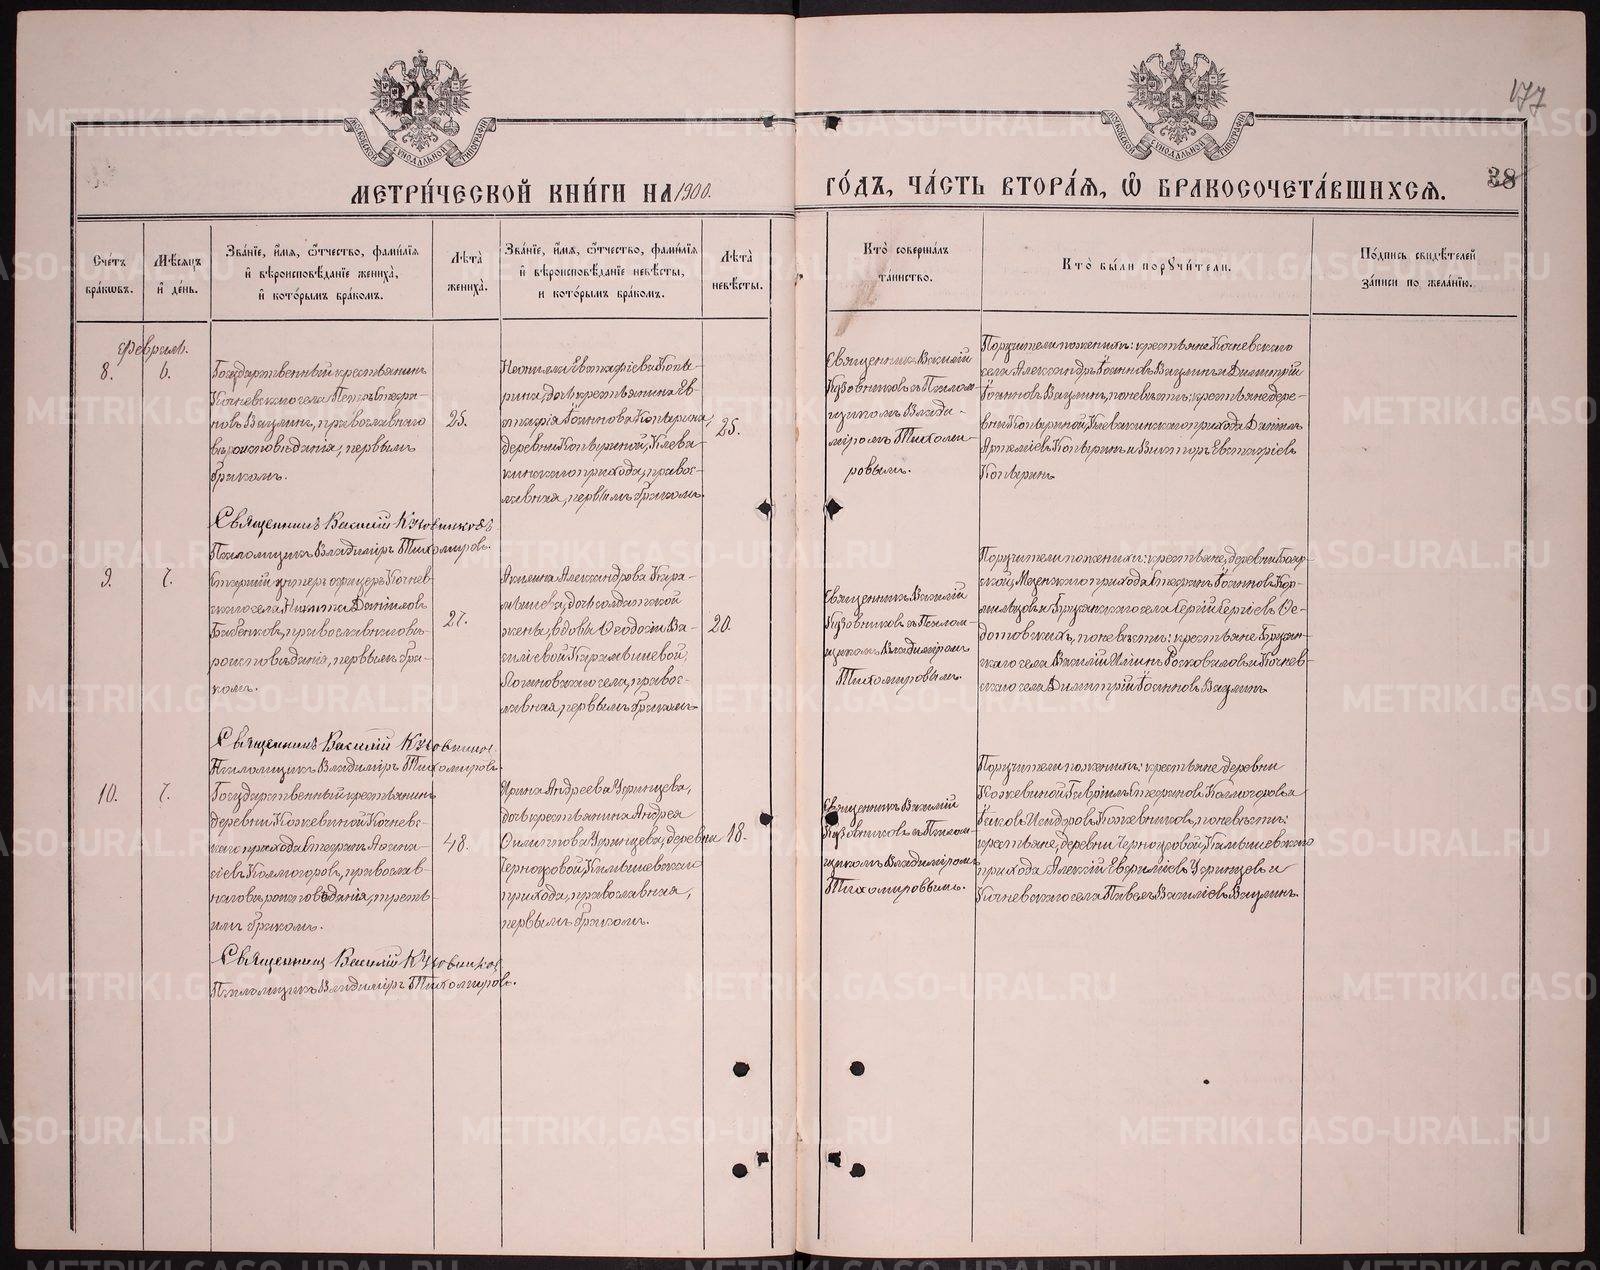 177
38
МОСКОВСКОЙ СѴНОДАЛЬНОЙ ТИПОГРАФІИ
МОСКОВСКОЙ СѴНОДАЛЬНОЙ ТИПОГРАФІИ
МЕТРИ́ЧЕСКОЙ КНИ́ГИ НА 1900.
ГО́ДЪ, ЧА́СТЬ ВТОРА́Ѧ, Ѽ БРАКОСОЧЕТА́ВШИХСѦ.
Сче́тъ
бра́кѡвъ.
Мѣ́сѧцъ
и҆ де́нь.
Зва́нїе, и҆́мѧ, ѻ҆́тчество, фами́лїѧ
и҆ вѣроисповѣ́данїе жениха̀,
и҆ кото́рымъ бра́комъ.
Лѣ́та
жениха̀.
Зва́нїе, и҆́мѧ, ѻ҆́тчество, фами́лїѧ
и҆ вѣроисповѣ́данїе невѣ́сты,
и кото́рымъ бра́комъ.
Лѣ́та
невѣ́сты.
Кто̀ соверша́лъ
та́инство.
Кто̀ бы́ли порꙋчи́тели.
По́дпись свидѣ́телей
за́писи по жела́нїю.
Февраль.
8.
6.
Государственный крестьянинъ
Кочневскаго села Петръ Стефа-
новъ Вазлинъ, православнаго
вѣроисповѣданія, первымъ
бракомъ.
25.
Неонилла Евстафіева Копы-
рина, дочь крестьянина Ев-
стафія Іоаннова Копырина,
деревни Копыриной, Клева-
кинскаго прихода, правос-
лавная, первымъ бракомъ.
25.
Священникъ Василій
Кузовниковъ съ Псалом-
щикомъ Влади-
міромъ Тихоми-
ровымъ.
Поручители по женихѣ: крестьяне Кочневскаго
села Александръ Іоанновъ Вазлинъ и Димитрій
Іоанновъ Вазлинъ, по невѣстѣ: крестьяне дере-
вни Копыриной, Клевакинскаго прихода Даніилъ
Артеміевъ Копыринъ и Викторъ Евстафіевъ
Копыринъ.
Священникъ Василій Кузовниковъ
Псаломщикъ Владиміръ Тихомировъ.
9.
7.
Старшій унтеръ офицеръ Кочнев-
скаго села Никита Даніиловъ
Бабенковъ, православнаго вѣ-
роисповѣданія, первымъ бра-
комъ.
27.
Акилина Александрова Кара-
мышева, дочь солдатской
жены, вдовы Ѳеодосіи Ва-
силіевой Карамышевой,
Логиновскаго села, правос-
лавная, первымъ бракомъ.
20.
Священникъ Василій
Кузовниковъ съ Псалом-
щикомъ Владиміромъ
Тихомировымъ.
Поручители по женихѣ: крестьяне, деревни Бояр-
ской, Мезенскаго прихода Стефанъ Іоанновъ Кор-
мильцовъ и Брусянскаго села Сергій Сергіевъ Ѳе-
дотовскихъ, по невѣстѣ: крестьяне Брусян-
скаго села Василій Ильинъ Росковаловъ и Кочнев-
скаго села Димитрій Іоанновъ Вазлинъ.
Священникъ Василій Кузовниковъ
Псаломщикъ Владиміръ Тихомировъ.
10.
7.
Государственный крестьянинъ
деревни Кожевиной Кочневс-
каго прихода Стефанъ Аѳана-
сіевъ Колмогоровъ, православ-
наго вѣроисповѣданія, треть-
имъ бракомъ.
48.
Ирина Андреева Устинцева,
дочь крестьянина Андрея
Филиппова Устинцева, деревни
Черноусовой, Камышевскаго
прихода, православная,
первымъ бракомъ.
18.
Священникъ Василій
Кузовниковъ съ Псалом-
щикомъ Владиміромъ
Тихомировымъ.
Поручители по женихѣ: крестьяне деревни
Кожевиной Гавріилъ Стефановъ Колмогоровъ и
Іаковъ Исидоровъ Кожевниковъ, по невѣстѣ:
крестьяне, деревни Черноусовой, Камышевскаго
прихода Алексій Евфиміевъ Устинцевъ и
Кочневскаго села Павелъ Василіевъ Вазлинъ.
Священникъ Василій Кузовниковъ
Псаломщикъ Владиміръ Тихомировъ.
METRIKI.GASO-URAL.RU